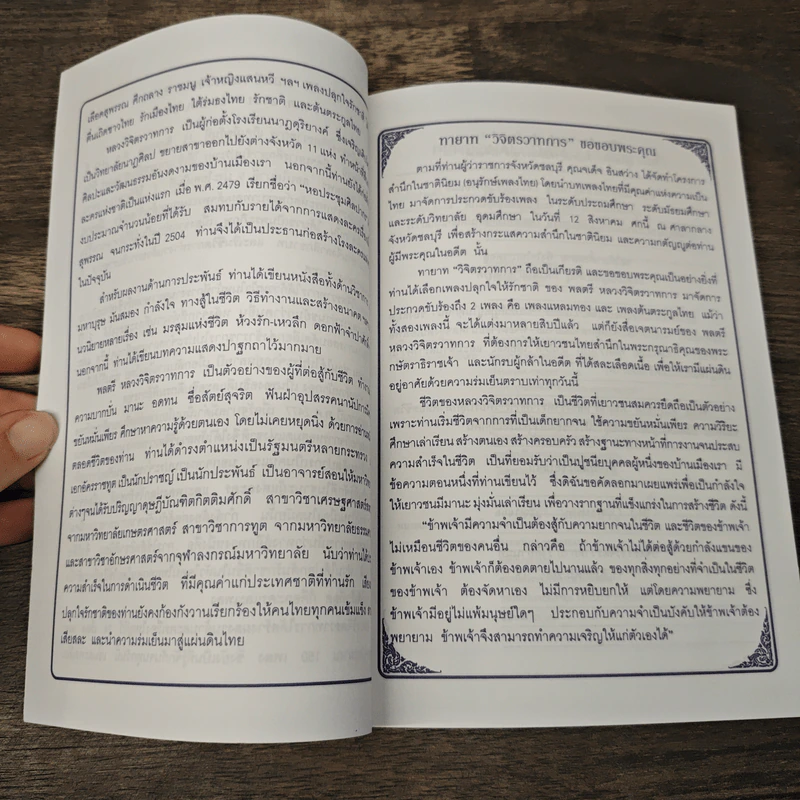 เลือดสุพรรณ ศึกถลาง ราชมนู เจ้าหญิงแสนหวี ฯลฯ เพลงปลุกใจรักชาติ
ตื่นเถิดชาวไทย รักเมืองไทย ใต้ร่มธงไทย รักชาติ และต้นตระกูลไทย
หลวงวิจิตรวาทการ เป็นผู้ก่อตั้งโรงเรียนนาฏดุริยางค์ ซึ่งเจริญ
เป็นวิทยาลัยนาฏศิลป ขยายสาขาออกไปยังต่างจังหวัด 11 แห่ง ทำหน้าที่
ศิลปะและวัฒนธรรมอันงดงามของบ้านเมืองเรา นอกจากนี้ท่านยังได้
ละครแห่งชาติเป็นแห่งแรก เมื่อ พ.ศ. 2479 เรียกชื่อว่า "หอประชุมศิลปากร
งบประมาณจำนวนน้อยที่ได้รับ สมทบกับรายได้จากการแสดงละคร
สุพรรณ จนกระทั่งในปี 2504 ท่านจึงได้เป็นประธานก่อสร้างโรงละคร
ในปัจจุบัน
สำหรับผลงานด้านการประพันธ์ ท่านได้เขียนหนังสือทั้งด้านวิชาการ
มหาบุรุษ มันสมอง กำลังใจ ทางสู้ในชีวิต วิธีทำงานและสร้างอนาคต
นวนิยายหลายเรื่อง เช่น มรสุมแห่งชีวิต ห้วงรัก-เหวลึก ดอกฟ้าจำปาศักดิ์
นอกจากนี้ ท่านได้เขียนบทความแสดงปาฐกถาไว้มากมาย
พลตรี หลวงวิจิตรวาทการ เป็นตัวอย่างของผู้ที่ต่อสู้กับชีวิต
ความบากบั่น มานะ อดทน ซื่อสัตย์สุจริต ฟันฝ่าอุปสรรคนานัปการ
ขยันหมั่นเพียร ศึกษาหาความรู้ด้วยตนเอง โดยไม่เคยหยุดนิ่ง ด้วยการอ่าน
ตลอดชีวิตของท่าน ท่านได้ดำรงตำแหน่งเป็นรัฐมนตรีหลายกระทรวง
เอกอัครราชทูต เป็นนักปราชญ์ เป็นนักประพันธ์ เป็นอาจารย์สอนให้มหาวิทยา
ต่างๆจนได้รับปริญญาดุษฎีบัณฑิตกิตติมศักดิ์ สาขาวิชาเศรษฐศาสตร์
จากมหาวิทยาลัยเกษตรศาสตร์ สาขาวิชาการทูต จากมหาวิทยาลัยธรรม
และสาขาวิชาอักษรศาสตร์จากจุฬาลงกรณ์มหาวิทยาลัย นับว่าท่านได้
ความสำเร็จในการดำเนินชีวิต ที่มีคุณค่าแก่ประเทศชาติที่ท่านรัก
ปลุกใจรักชาติของท่านยังคงก้องกังวานเรียกร้องให้คนไทยทุกคนเข้มแข็ง
เสียสละ และนำความร่มเย็นมาสู่แผ่นดินไทย
ทายาท "วิจิตรวาทการ" ขอขอบพระคุณ
ตามที่ท่านผู้ว่าราชการจังหวัดชลบุรี คุณจเด็จ อินสว่าง ได้จัดทำโครงการ
สำนึกในชาตินิยม (อนุรักษ์เพลงไทย) โดยนำบทเพลงไทยที่มีคุณค่าแห่งความเป็น
ไทย มาจัดการประกวดขับร้องเพลง ในระดับประถมศึกษา ระดับมัธยมศึกษา
และระดับวิทยาลัย อุดมศึกษา ในวันที่ 12 สิงหาคม ศกนี้ ณ ศาลากลาง
จังหวัดชลบุรี เพื่อสร้างกระแสความสำนึกในชาตินิยม และความกตัญญูต่อท่าน
ผู้มีพระคุณในอดีต นั้น
ทายาท "วิจิตรวาทการ" ถือเป็นเกียรติ และขอขอบพระคุณเป็นอย่างยิ่งที่
ท่านได้เลือกเพลงปลุกใจให้รักชาติ ของ พลตรี หลวงวิจิตรวาทการ มาจัดการ
ประกวดขับร้องถึง 2 เพลง คือ เพลงแหลมทอง และ เพลงต้นตระกูลไทย แม้ว่า
ทั้งสองเพลงนี้ จะได้แต่งมาหลายสิบปีแล้ว แต่ก็ยังสื่อเจตนารมย์ของ พลตรี
หลวงวิจิตรวาทการ ที่ต้องการให้เยาวชนไทยสำนึกในพระกรุณาธิคุณของพระ
กษัตราธิราชเจ้า และนักรบผู้กล้าในอดีต ที่ได้สละเลือดเนื้อ เพื่อให้เรามีแผ่นดิน
อยู่อาศัยด้วยความร่มเย็นตราบเท่าทุกวันนี้
ชีวิตของหลวงวิจิตรวาทการ เป็นชีวิตที่เยาวชนสมควรยึดถือเป็นตัวอย่าง
เพราะท่านเริ่มชีวิตจากการที่เป็นเด็กยากจน ใช้ความขยันหมั่นเพียร ความวิริยะ
ศึกษาเล่าเรียน สร้างตนเอง สร้างครอบครัว สร้างฐานะทางหน้าที่การงานจนประสบ
ความสำเร็จในชีวิต เป็นที่ยอมรับว่าเป็นปูชนียบุคคลผู้หนึ่งของบ้านเมืองเรา มี
ข้อความตอนหนึ่งที่ท่านเขียนไว้ ซึ่งดิฉันขอคัดลอกมาเผยแพร่เพื่อเป็นกำลังใจ
ให้เยาวชนมีมานะ มุ่งมั่นเล่าเรียน เพื่อวางรากฐานที่แข็งแกร่งในการสร้างชีวิต ดังนี้
"ข้าพเจ้ามีความจำเป็นต้องสู้กับความยากจนในชีวิต และชีวิตของข้าพเจ้า
ไม่เหมือนชีวิตของคนอื่น กล่าวคือ ถ้าข้าพเจ้าไม่ได้ต่อสู้ด้วยกำลังแขนของ
ข้าพเจ้าเอง ข้าพเจ้าก็ต้องอดตายไปนานแล้ว ของทุกสิ่งทุกอย่างที่จำเป็นในชีวิต
ของข้าพเจ้า ต้องจัดหาเอง ไม่มีการหยิบยกให้ แต่โดยความพยายาม ซึ่ง
ข้าพเจ้ามีอยู่ไม่แพ้มนุษย์ใดๆ ประกอบกับความจำเป็นบังคับให้ข้าพเจ้าต้อง
พยายาม ข้าพเจ้าจึงสามารถทำความเจริญให้แก่ตัวเองได้"